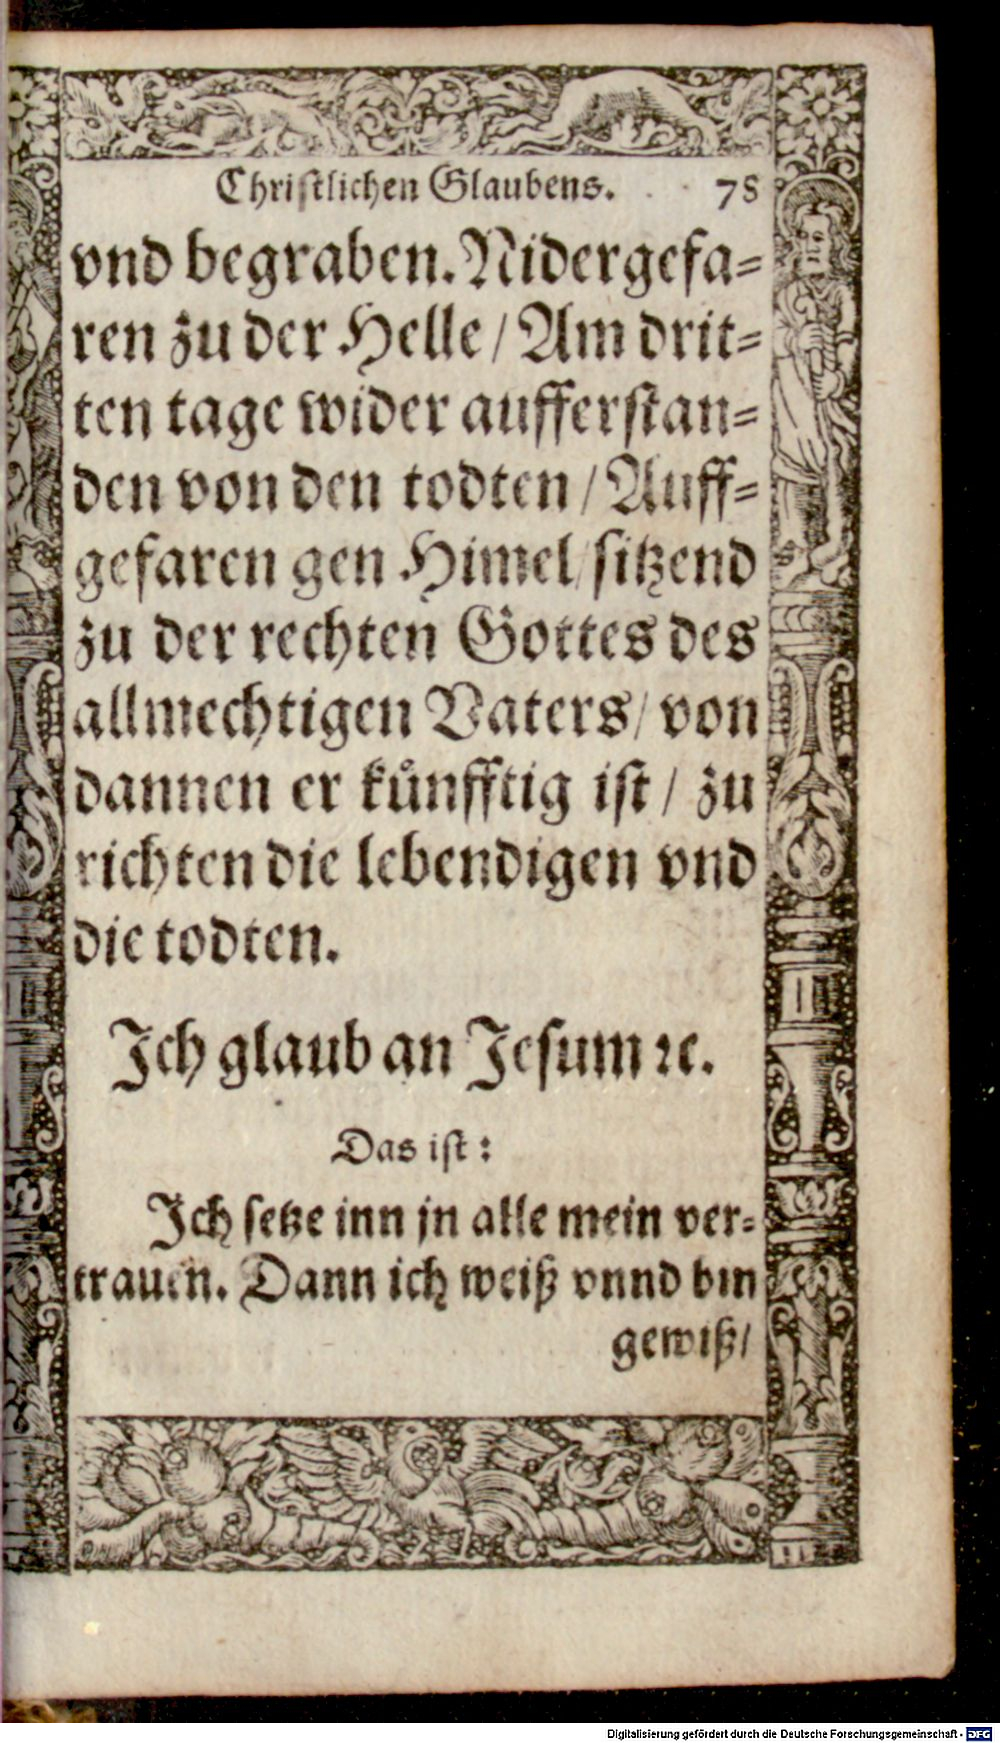 Christlichen Glaubens. 78
vnd begraben. Nidergefa⸗
ren zu der Helle / Am drit⸗
ten tage wider aufferstan⸗
den von den todten / Auff⸗
gefaren gen Himel / sitzend
zu der rechten Gottes des
allmechtigen Vaters / von
dannen er kuͤnfftig ist / zu
richten die lebendigen vnd
die todten.
Ich glaub an Jesum ꝛc.
Das ist:
Ich setze inn jn alle mein ver⸗
trauen. Dann ich weiß vnnd bin
gewiß /
Digitalisierung gefördert durch die Deutsche Forschungsgemeinschaft - DFG